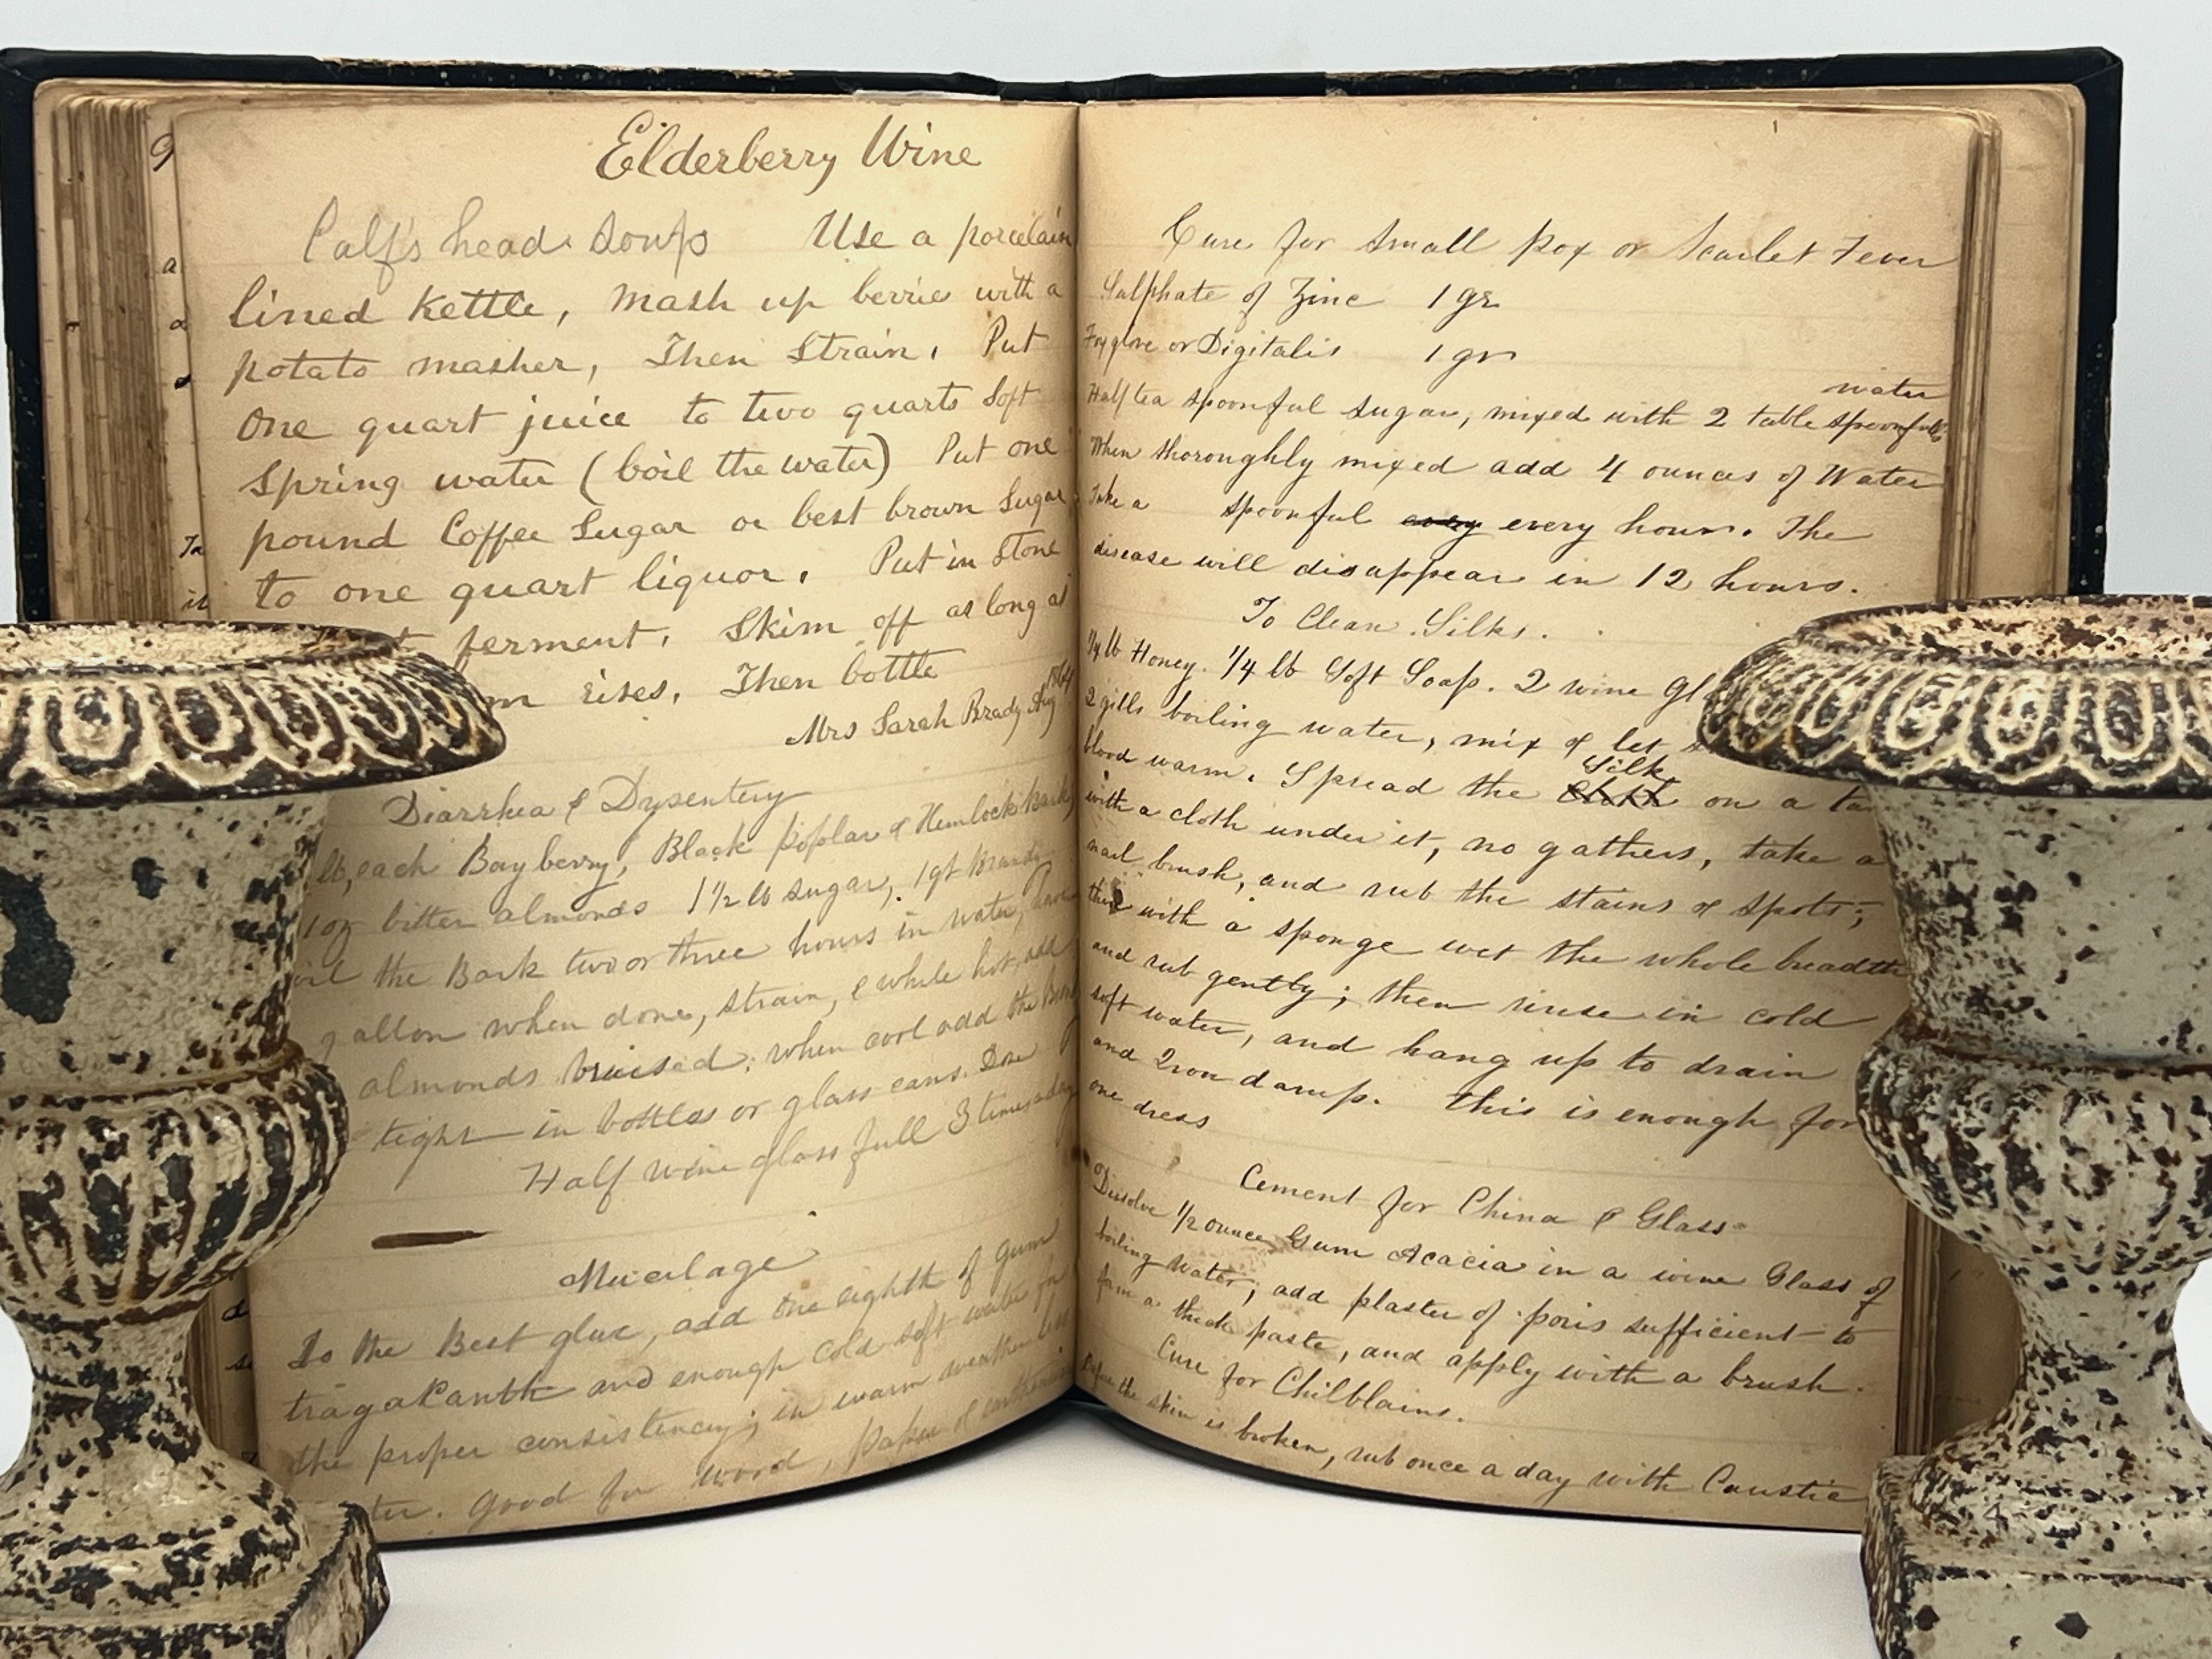 Elderberry Wine
Calf's head Soup Use a porcelain
lined Kettle, mash up berries with a
potato masher, Then Strain. Put
One quart juice to two quarts Soft
Spring water (boil the water) Put one
pound Coffee Sugar or best brown Sugar
to one quart liquor. Put in Stone
ferment. Skim off as long as
rises. Then bottle
Mrs Sarah Brady Aug
Diarrhea & Dysentery
lb, each Bayberry, Black poplar & Hemlock Bark
1 oz bitter almonds 1 1/2 lb sugar, 1 qt Brandy
the Bark two or three hours in water, have
gallon when done, strain, & while hot, add
almonds bruised; when cool add the
tight in bottles or glass cans. Dose
Half wine glass full 3 times a day
Mucilage
To the Best glue, add one eighth of gum
tragakanth and enough cold soft water for
the proper consistency; in warm weather less
Good for wood, paper & earthenware
Cure for Small Pox or Scarlet Fever
Sulphate of Zinc 1 gr.
Foxglove or Digitalis 1 gr
water
Half tea spoonful sugar, mixed with 2 table spoonfuls
When thoroughly mixed add 4 ounces of Water
Take a spoonful every every hour. The
disease will disappear in 12 hours.
To Clean Silks.
1/4 lb Honey. 1/4 lb Soft Soap. 2 wine
2 gills boiling water, mix & let
Silk
blood warm. Spread the on a
with a cloth under it, no gathers, take a
nail brush, and rub the stains & spots;
then with a sponge wet the whole breadth
and rub gently; then rinse in cold
soft water, and hang up to drain
and Iron damp. this is enough for
one dress
Cement for China & Glass
Dissolve 1/2 ounce Gum Acacia in a wine Glass of
boiling water; add plaster of paris sufficient to
form a thick paste, and apply with a brush.
Cure for Chilblains.
Before the skin is broken, rub once a day with Caustic